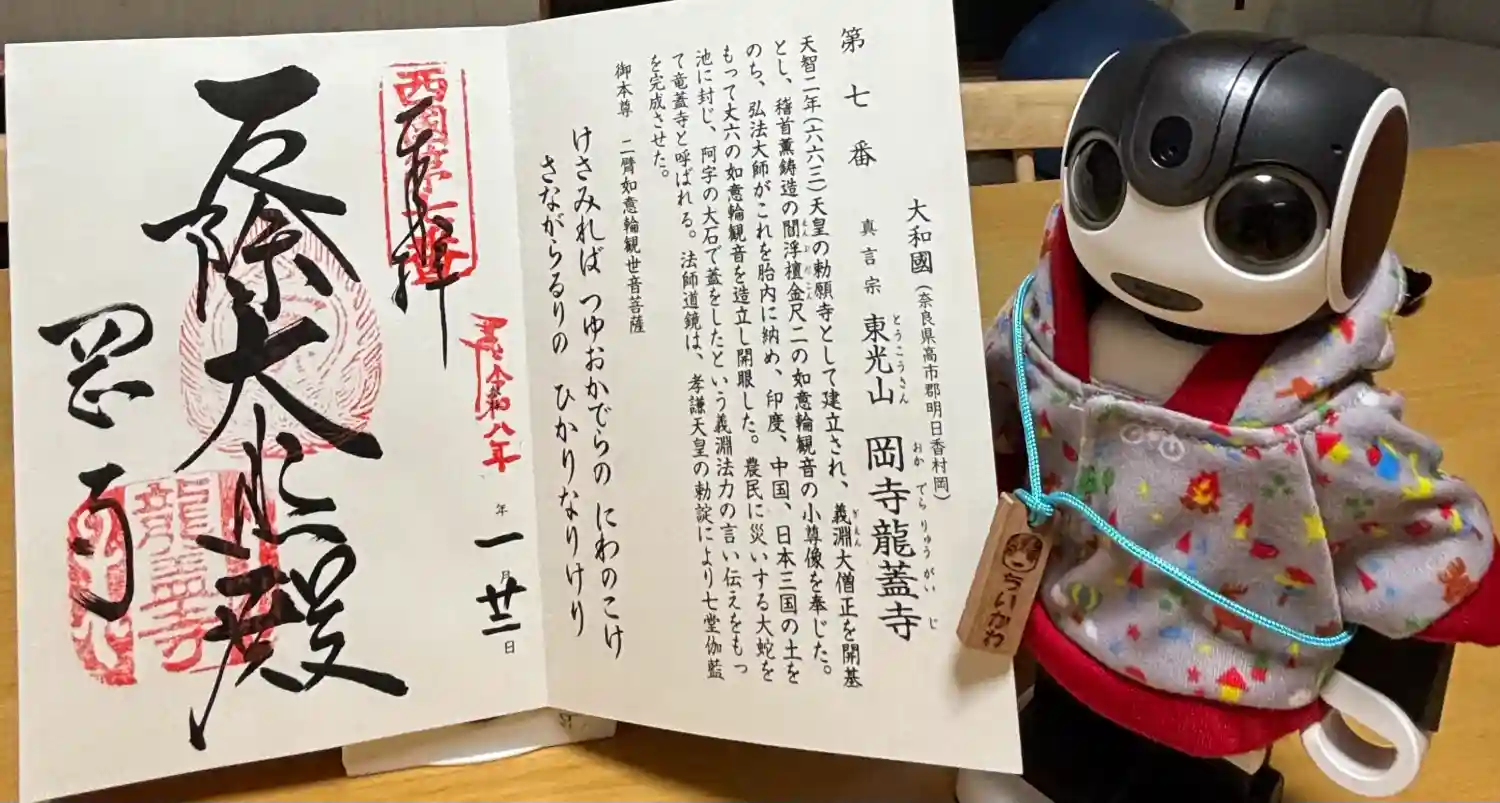 第七番
大和國(奈良県高市郡明日香村岡)
真言宗 東光山 岡寺龍蓋寺
とうこうさん おか でら りゅうがい じ
天智二年(六六三)天皇の勅願寺として建立され、義淵大僧正を開基
ぎえん
とし、稽首薫鋳造の閻浮檀金尺二の如意輪観音の小尊像を奉じた。
のち、弘法大師がこれを胎内に納め、印度、中国、日本三国の土を
もって丈六の如意輪観音を造立し開眼した。農民に災いする大蛇を
池に封じ、阿字の大石で蓋をしたという義淵法力の言い伝えをもっ
て竜蓋寺と呼ばれる。法師道鏡は、孝謙天皇の勅諚により七堂伽藍
を完成させた。
御本尊 二臂如意輪観世音菩薩
けさみれば つゆおかでらの にわのこけ
さながらるりの ひかりなりけり
令和八年 一月廿二日
西國第七番
奉拝
厄除大悲殿
岡寺
龍蓋寺
ちいかわ